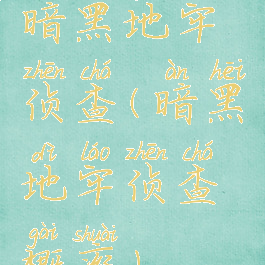 暗黑地牢
zhēn chá àn hēi
侦查(暗黑
dì láo zhēn chá
地牢侦查
gài shuài